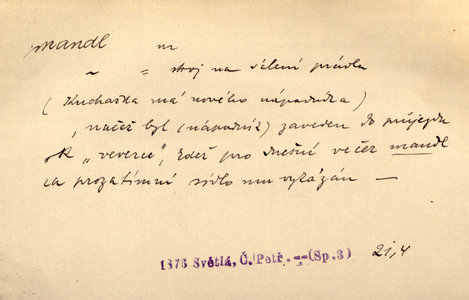 mandl m
~ = stroj na válení prádla
(Kuchařka má nového nápadníka)
, načež byl (nápadník) zaveden do průjezdu
K „veverce", kdež pro dnešní večer mandl
za prozatímní sídlo mu vykázán —
1876 Světlá, Č. Petř. -- (Sp. 3) 21,4